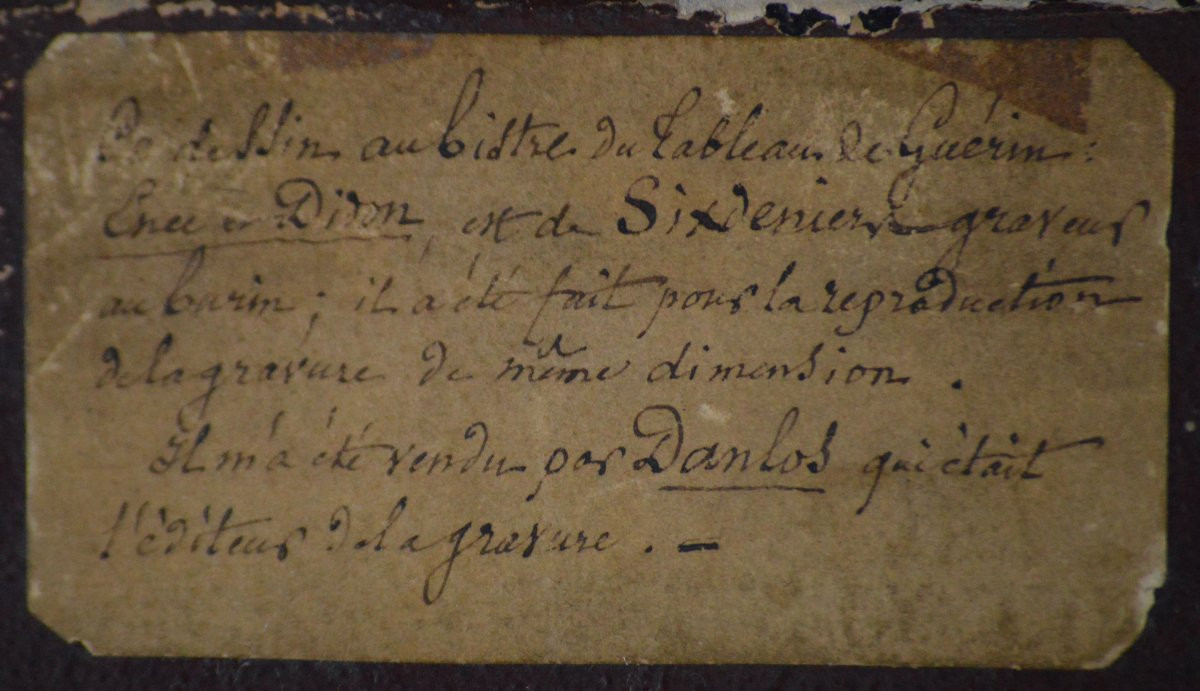 Ce dessin au bistre du tableau de Guérin :
Enée et Didon, est de Sixdeniers graveur
au burin ; il a été fait pour la reproduction
de la gravure de même dimension .
Il m'a été vendu par Danlos qui était
l'éditeur de la gravure . —